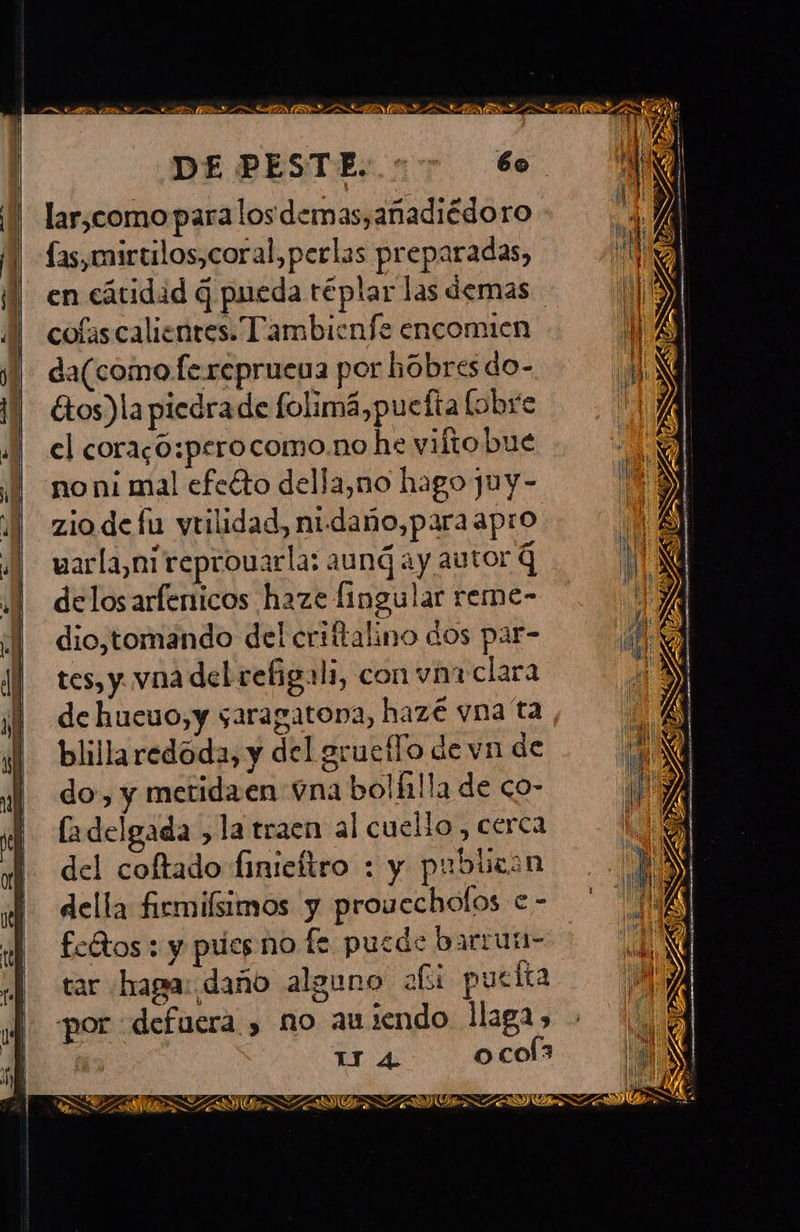 DE PESTE. 60
lar,como para los demas,añadiẽdo ro
ſas,mirtilos,coral,perlas preparadas,
en cãtidad q̃ pueda tẽplar las demas
coſas calientes. Tambienſe encomien
da(como ſe reprueua por hõbres do-
ctos)la piedra de ſolimã,pueſta ſobre
el coraçõ:pero como no he viſto bue
no ni mal efecto della,no hago juy-
zio de ſu vtilidad, ni daño,para apro
uarla,ni reprouarla: aunq̃ ay autor q̃
de los arſenicos haze ſingular reme-
dio,tomando del criſtalino dos par-
tes,y vna del reſigali, con vna clara
de hueuo,y çaragatona, hazẽ vna ta
blilla redõda, y del grueſſo de vn de
do, y metida en vna bolſilla de co-
ſa delgada , la traen al cuello , cerca
del coſtado ſinieſtro : y publican
della firmiſsimos y prouechoſos e-
fectos : y pues no ſe puede barrun-
tar haga daño alguno aſsi pueſta
por defuera , no auiendo llaga,
U 4 o coſa